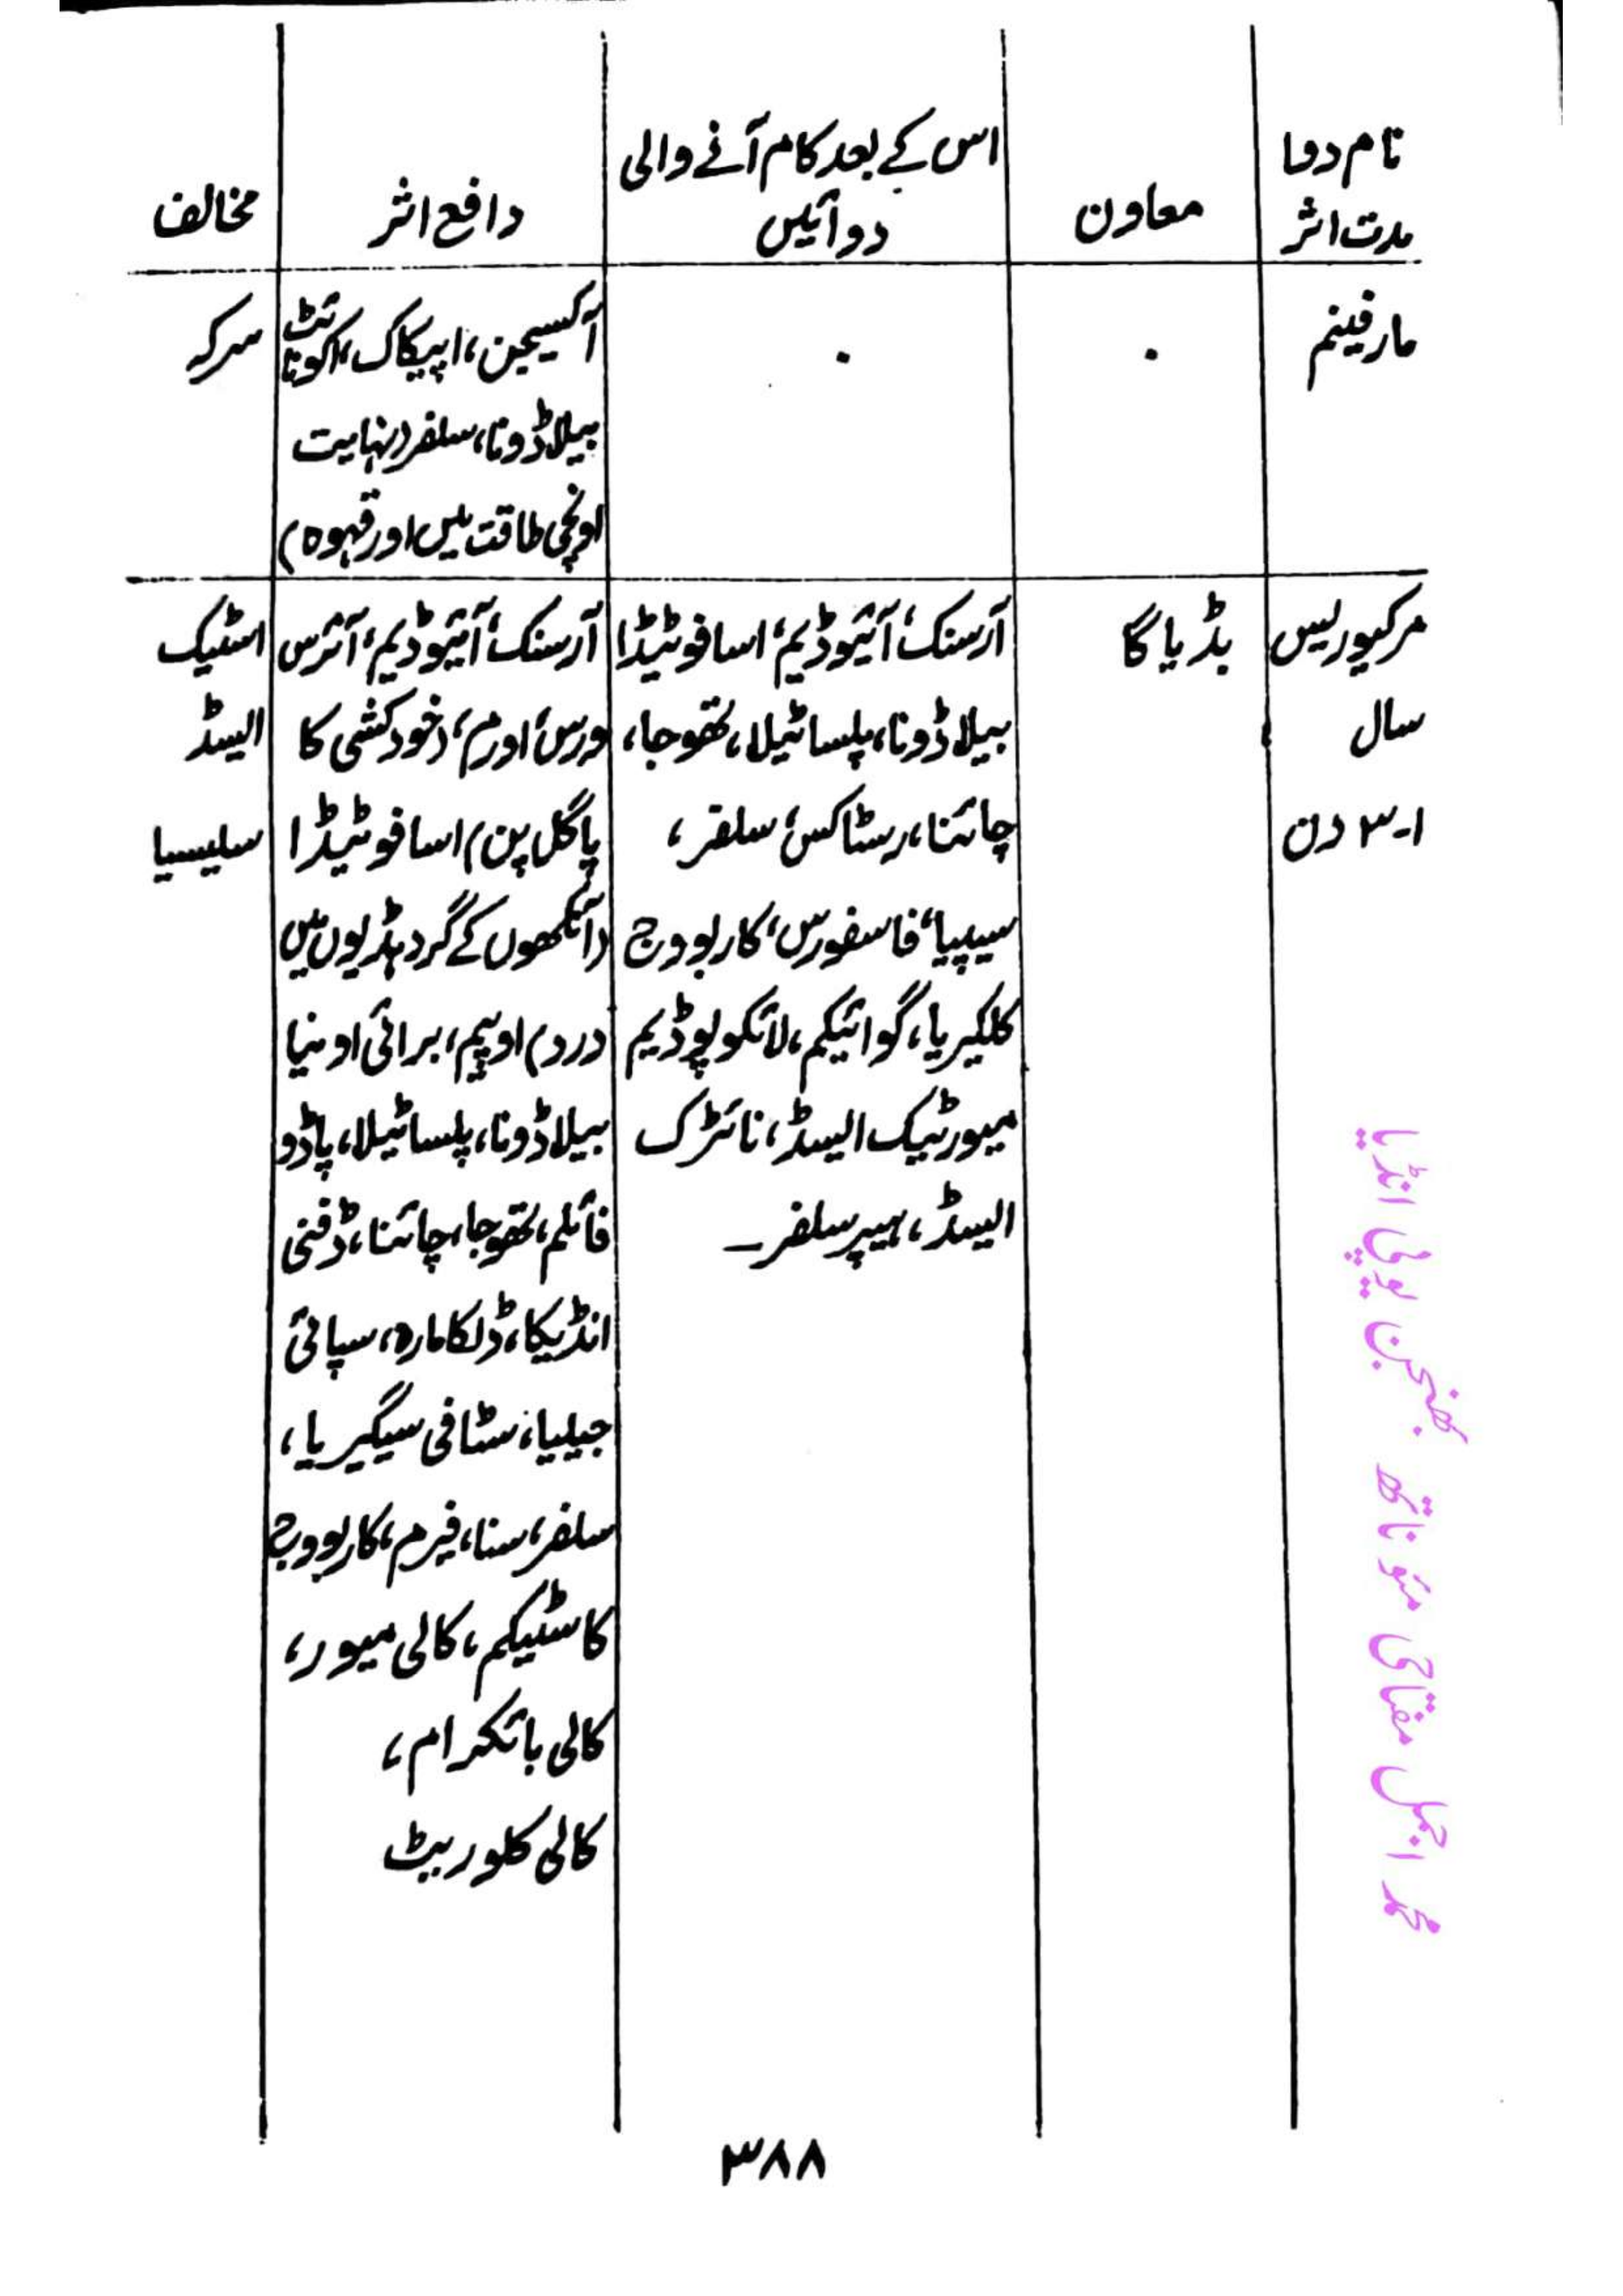 نام دوا
مدت اثر
معاون
اس کے بعد کام آنے والی
دوائیں
دافع اثر
مخالف
مارفینم
.
.
آکسیجن، اپیکاک، اکونائٹ
بیلاڈونا، سلفر (نہایت
اونچی طاقت میں اور قہوہ)
سرکہ
مرکیورلیس
سال
۱-۳ دن
بڈیاگا
آرسنک، آئیوڈیم، اسافوٹیڈا
بیلاڈونا، پلساٹیلا، تھوجا،
چائنا، رسٹاکس، سلفر،
سیپیا، فاسفورس، کاربوویج
کلکیریا، گوائیکم، لائکوپوڈیم
میورٹیک ایسڈ، نائٹرک
ایسڈ، ہیپر سلفر۔
آرسنک، آئیوڈیم، آئرس
ورس، اورم، (خودکشی کا
پاگل پن) اسافوٹیڈا
(آنکھوں کے گرد ہڈیوں میں
درد) اوپیم، برائی اونیا
بیلاڈونا، پلساٹیلا، پاڈو
فائلم، تھوجا، چائنا، ڈفنی
انڈیکا، ڈلکامارہ، سپائی
جیلیا، سٹافی سیگیریا،
سلفر، سنا، فیرم، کاربوویج
کاسٹیکم، کالی میور،
کالی بائکرام،
کالی کلوریٹ
اسٹیک
ایسڈ
سلیسیا
محمد اجمل مفتاحی مئو ناتھ بھنجن یوپی انڈیا
۳۸۸